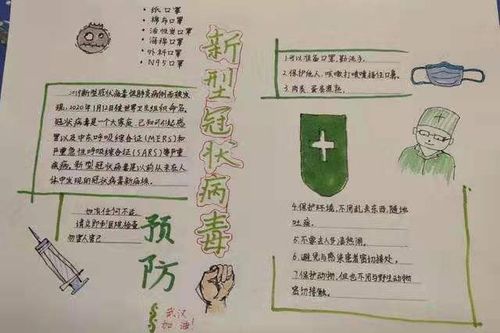 • 纸口罩
• 棉布口罩
• 活性炭口罩
• 海绵口罩
• 外科口罩
• N95口罩
新型冠状病毒
预防
2019新型冠状病毒
现，2020年1月12日被世界卫生组织命名，
冠状病毒是一个大家族，已知可引起感
冒以及中东呼吸综合征(MERS)和
严重急性呼吸综合征(SARS)等严重
疾病。新型冠状病毒是以前从未在人
体中发现的冠状病毒新病株。
如有任何不适，
请立即到医院检查，
勿害人害己
武汉
加油！
1.可以准备口罩，勤洗手。
2.保护他人，咳嗽打喷嚏捂住口鼻。
3.肉类、蛋类煮熟。
4.保护环境，不同乱丢东西，随地
吐痰。
5.不要去人多凑热闹。
6.避免与感染患者密切接触。
7.保护动物，但也不同与野生动物
密切接触。